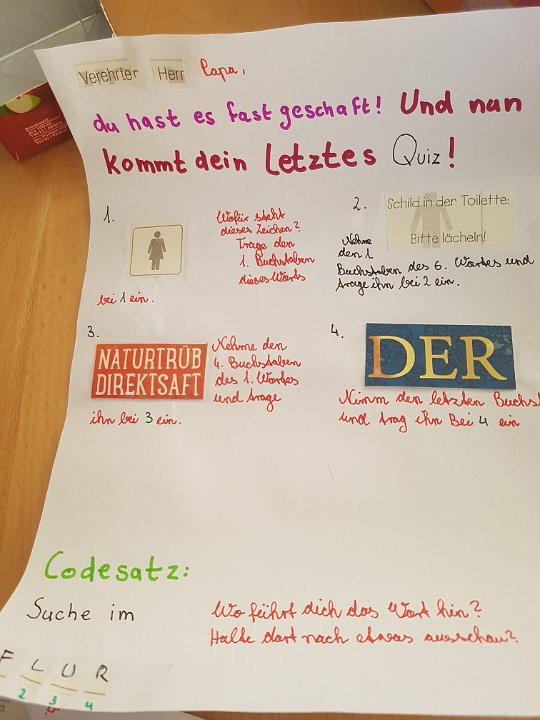 Verehrter Herr Papa,
du hast es fast geschaft! Und nun
kommt dein letztes Quiz!
1.
Wofür steht
dieses Zeichen?
Trage den
1. Buchstaben
dieses Worts
bei 1 ein.
2.
Schild in der Toilette:
Bitte lächeln!
Nehme
den 1.
Buchstaben des 6. Wortes und
trage ihn bei 2 ein.
3.
NATURTRÜB
DIREKTSAFT
Nehme den
4. Buchstaben
des 1. Wortes
und trage
ihn bei 3 ein.
4.
DER
Nimm den letzten Buchst
und trag ihn Bei 4 ein
Codesatz:
Suche im
Wo führt dich das Wort hin?
Halte dort nach etwas ausschau?
F L U R
2 3 4